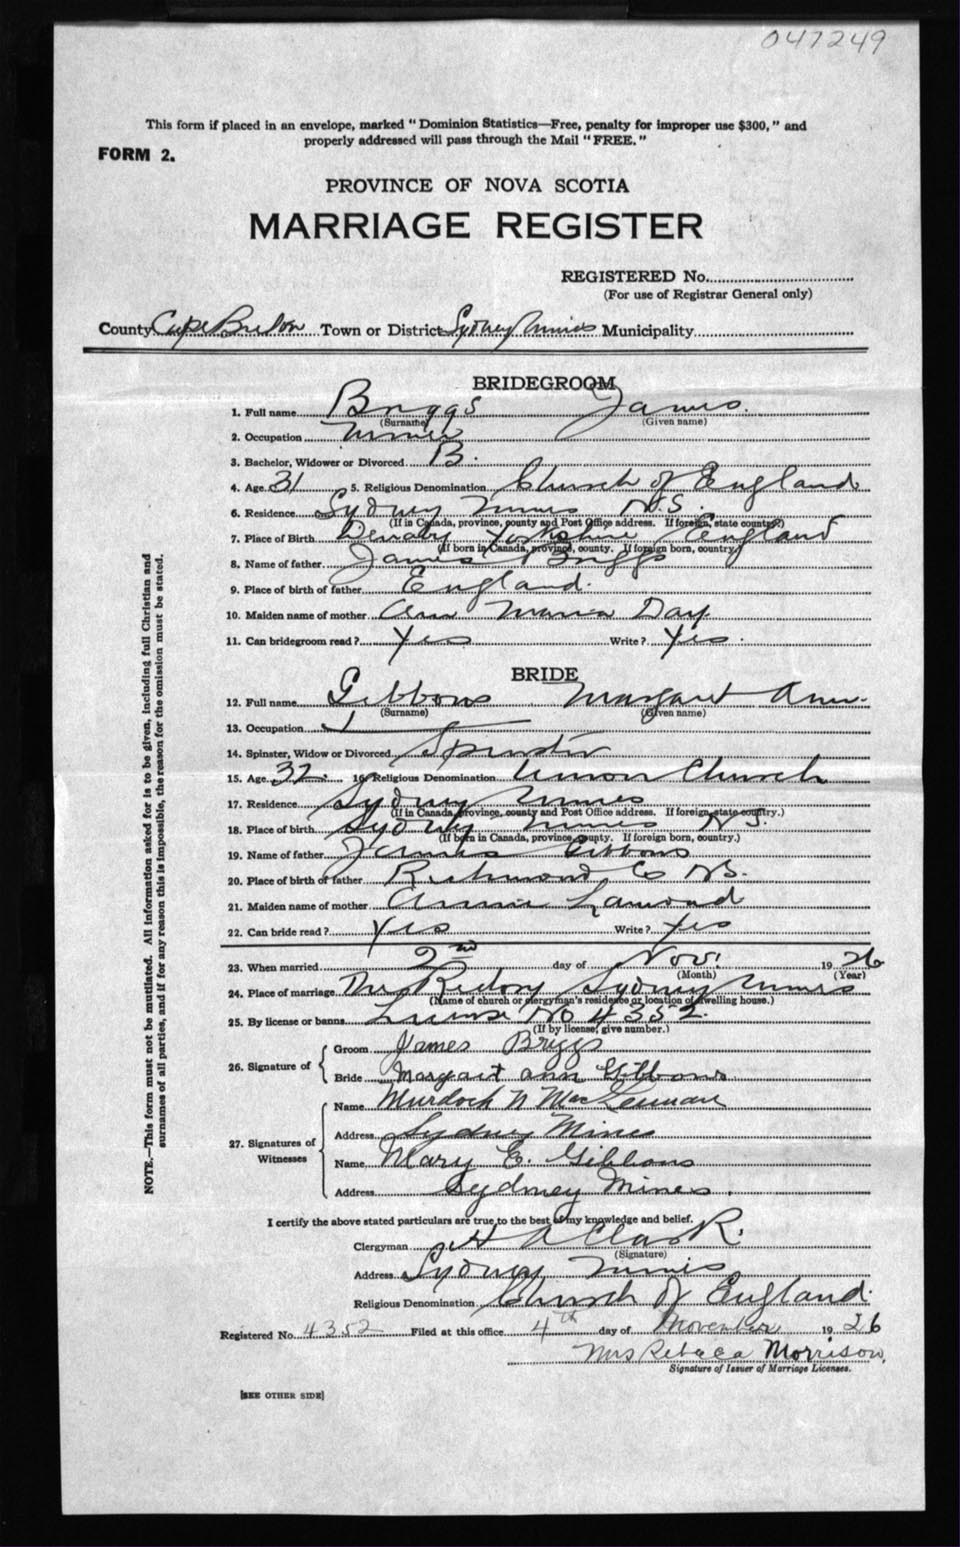 047249
This form if placed in an envelope, marked "Dominion Statistics—Free, penalty for improper use $300," and
properly addressed will pass through the Mail "FREE."
FORM 2.
PROVINCE OF NOVA SCOTIA
MARRIAGE REGISTER
REGISTERED No.
(For use of Registrar General only)
County Cape Breton Town or District Sydney Mines Municipality
BRIDEGROOM
1. Full name Briggs James.
(Surname) (Given name)
2. Occupation Miner
3. Bachelor, Widower or Divorced B.
4. Age 31 5. Religious Denomination Church of England
6. Residence Sydney Mines N.S
(If in Canada, province, county and Post Office address. If foreign, state country.)
7. Place of Birth Denaby Yorkshire England
(If born in Canada, province, county. If foreign born, country.)
8. Name of father James Briggs
9. Place of birth of father England.
10. Maiden name of mother Ann Maria Day
11. Can bridegroom read? Yes Write? Yes.
BRIDE
12. Full name Gibbons Margaret Ann.
(Surname) (Given name)
13. Occupation
14. Spinster, Widow or Divorced Spinster
15. Age 32. 16. Religious Denomination Union Church
17. Residence Sydney Mines
(If in Canada, province, county and Post Office address. If foreign, state country.)
18. Place of birth Sydney Mines N.S.
(If born in Canada, province, county. If foreign born, country.)
19. Name of father James Gibbons
20. Place of birth of father Richmond Co NS.
21. Maiden name of mother Annie Lamond
22. Can bride read? Yes Write? Yes
23. When married 2nd day of Nov. 1926
(Month) (Year)
24. Place of marriage The Rectory Sydney Mines
(Name of church or clergyman's residence or location of dwelling house.)
25. By license or banns License No 4352.
(If by license, give number.)
26. Signature of
Groom James Briggs
Bride Margaret ann Gibbons
27. Signatures of Witnesses
Name Murdock N MacLennan
Address Sydney Mines
Name Mary E. Gibbons
Address Sydney Mines.
I certify the above stated particulars are true to the best of my knowledge and belief.
Clergyman A Clark.
(Signature)
Address Sydney Mines
Religious Denomination Church of England.
Registered No. 4352 Filed at this office 4th day of November 1926
Mrs Rebecca Morrison,
Signature of Issuer of Marriage Licenses.
[SEE OTHER SIDE]
NOTE.—This form must not be mutilated. All information asked for is to be given, including full Christian and
surnames of all parties, and if for any reason this is impossible, the reason for the omission must be stated.